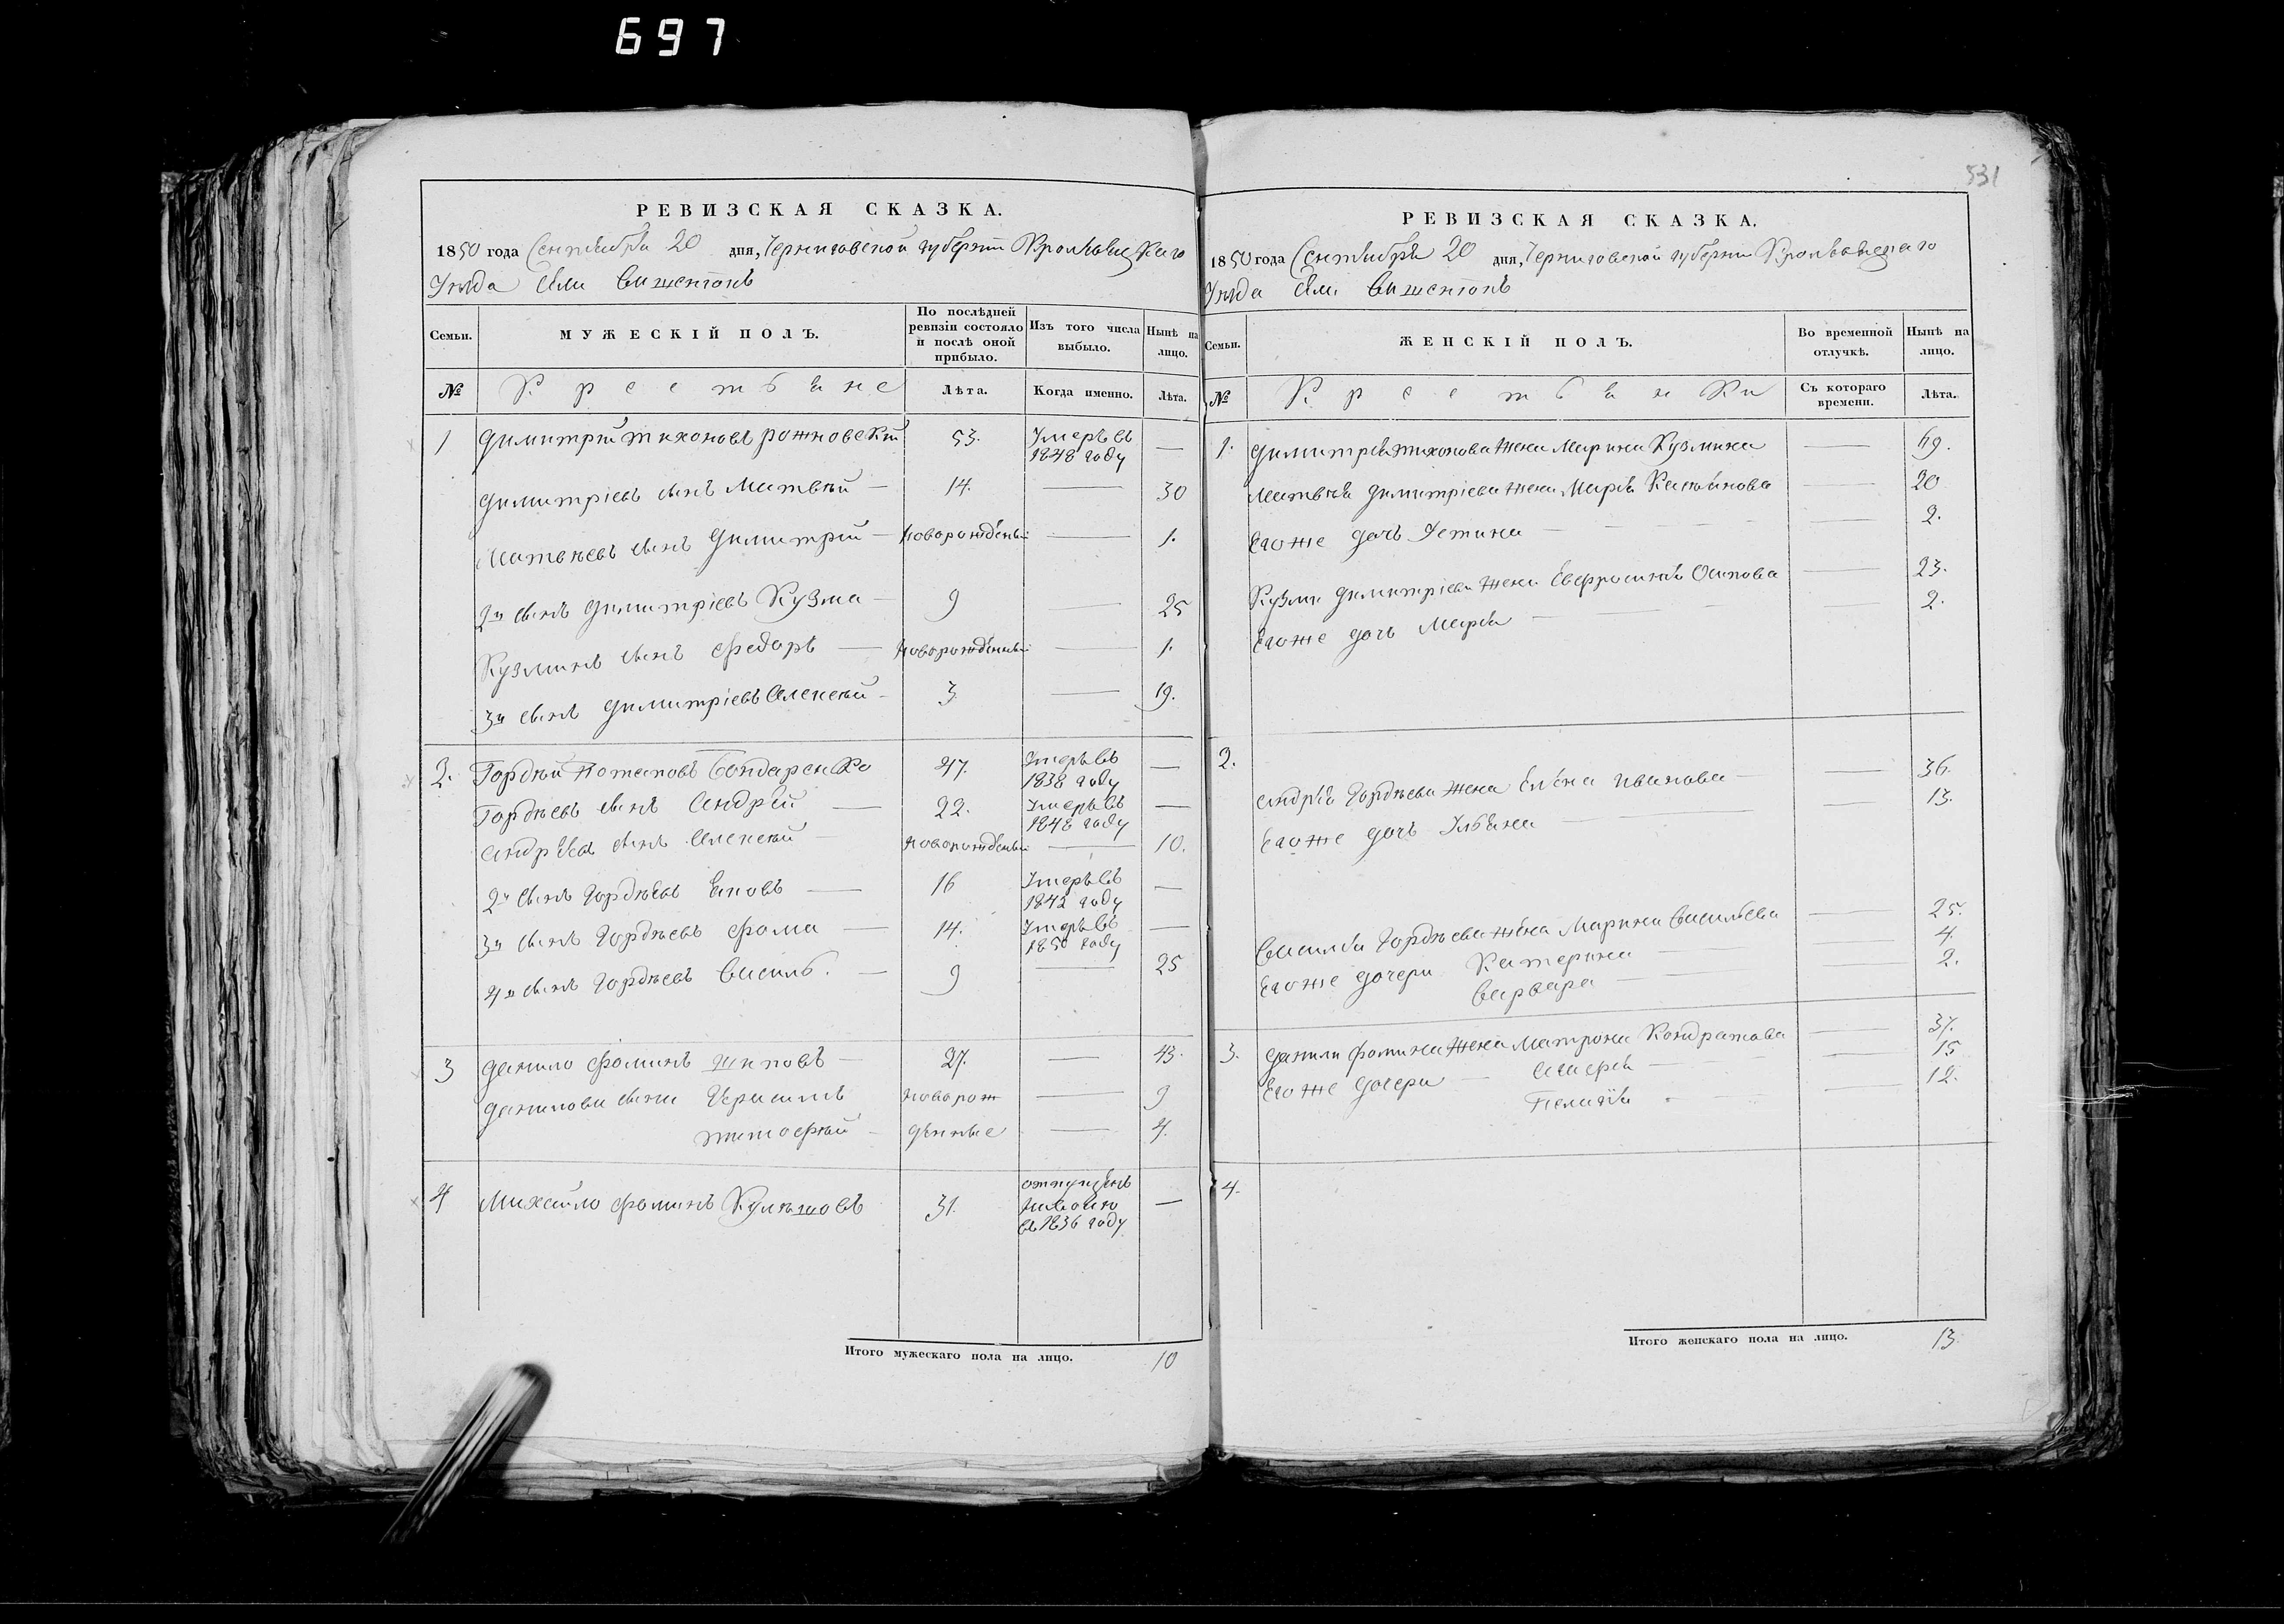 697
531
РЕВИЗСКАЯ СКАЗКА.
1850 года Сентября 20 дня, Черниговской губернии Кролевецкаго
Уезда Села Вишенокъ
Семьи. МУЖЕСКІЙ ПОЛЪ. По послѣдней ревизіи состояло и послѣ оной прибыло. Изъ того числа выбыло. Нынѣ на лицо.
№ Крестьяне Лѣта. Когда именно. Лѣта.
1 Димитрій Тихоновъ Рожновскій 53. Умеръ въ 1848 году —
Димитріевъ сынъ Матвѣй — 14. — 30
Матвѣевъ сынъ Димитрій — новорожденый — 1.
2й сынъ Димитріевъ Кузма — 9 — 25
Кузминъ сынъ Федоръ — новорожденный — 1.
3й сынъ Димитріевъ Алексѣй — 3 — 19.
2. Гордѣй Потаповъ Бондаренко 47. Умеръ въ 1838 году —
Гордѣевъ сынъ Андрей — 22. Умеръ въ 1848 году —
Андреевъ сынъ Алексѣй — новорожденый — 10.
2й сынъ Гордѣевъ Яковъ — 16 Умеръ въ 1842 году —
3й сынъ Гордѣевъ Фома — 14. Умеръ въ 1850 году —
4й сынъ Гордѣевъ Василь. — 9 — 25
3 Данило Фоминъ — 27. — 43.
Даниловы сыны Герасимъ новорож — 9
Тимофѣй — денные — 4.
4 Михайло Фоминъ Кулѣшовъ 31. отпущенъ на волю въ 1836 году —
Итого мужескаго пола на лицо. 10
РЕВИЗСКАЯ СКАЗКА.
1850 года Сентября 20 дня, Черниговской губернии Кролевецкаго
Уезда Села Вишенокъ
Семьи. ЖЕНСКІЙ ПОЛЪ. Во временной отлучкѣ. Нынѣ на лицо.
№ Крестьянки Съ котораго времени. Лѣта.
1. Димитрія Тихонова жена Марина Кузмина — 69.
Матвѣя Димитріева жена Марія — 20
Его же дочь Устина — 2.
Кузмы Димитріева жена Евфросинія Осипова — 23.
Его же дочь Марья — 2.
2. Андрея Гордѣева жена Елена Иванова — 36.
Его же дочь Ульяна — 13.
Василья Гордѣева жена Марина Васильева — 25.
Его же дочери Катерина — 4.
Варвара — 2.
3. Данилы Фомина жена Матрона Кондратова — 37.
Его же дочери — — 15
Пелагія — 12.
4.
Итого женскаго пола на лицо. 13.